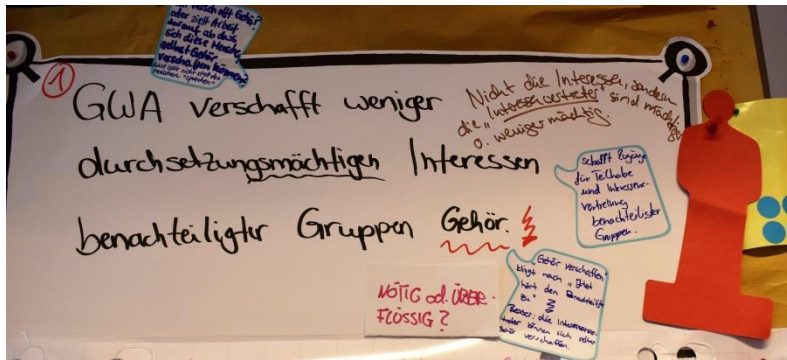 verschafft Gehör?
oder zielt Arbeit
darauf ab dass
sich diese Mensche
selbst Gehör
verschaffen können?
①
GWA verschafft weniger
durchsetzungsmächtigen Interessen
benachteiligter Gruppen Gehör.
Nicht die Interessen, sondern
die "Interessenvertreter" sind mächtiger
o. weniger mächtig.
schafft Zugänge
für Teilhabe
und Interessen-
vertretung
benachteiligter
Gruppen.
"Gehör verschaffen"
klingt nach "Jetzt
hört den Benachteiligt
zu"
Besser: die Interessenver-
treter können sich selber
Gehör verschaffen.
NÖTIG od. ÜBER-
FLÜSSIG?